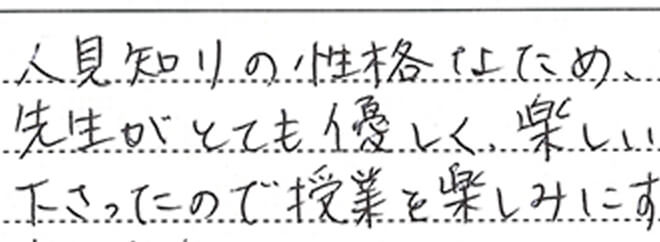 人見知りの性格なため、
先生がとても優しく、楽しい
下さったので授業を楽しみにす